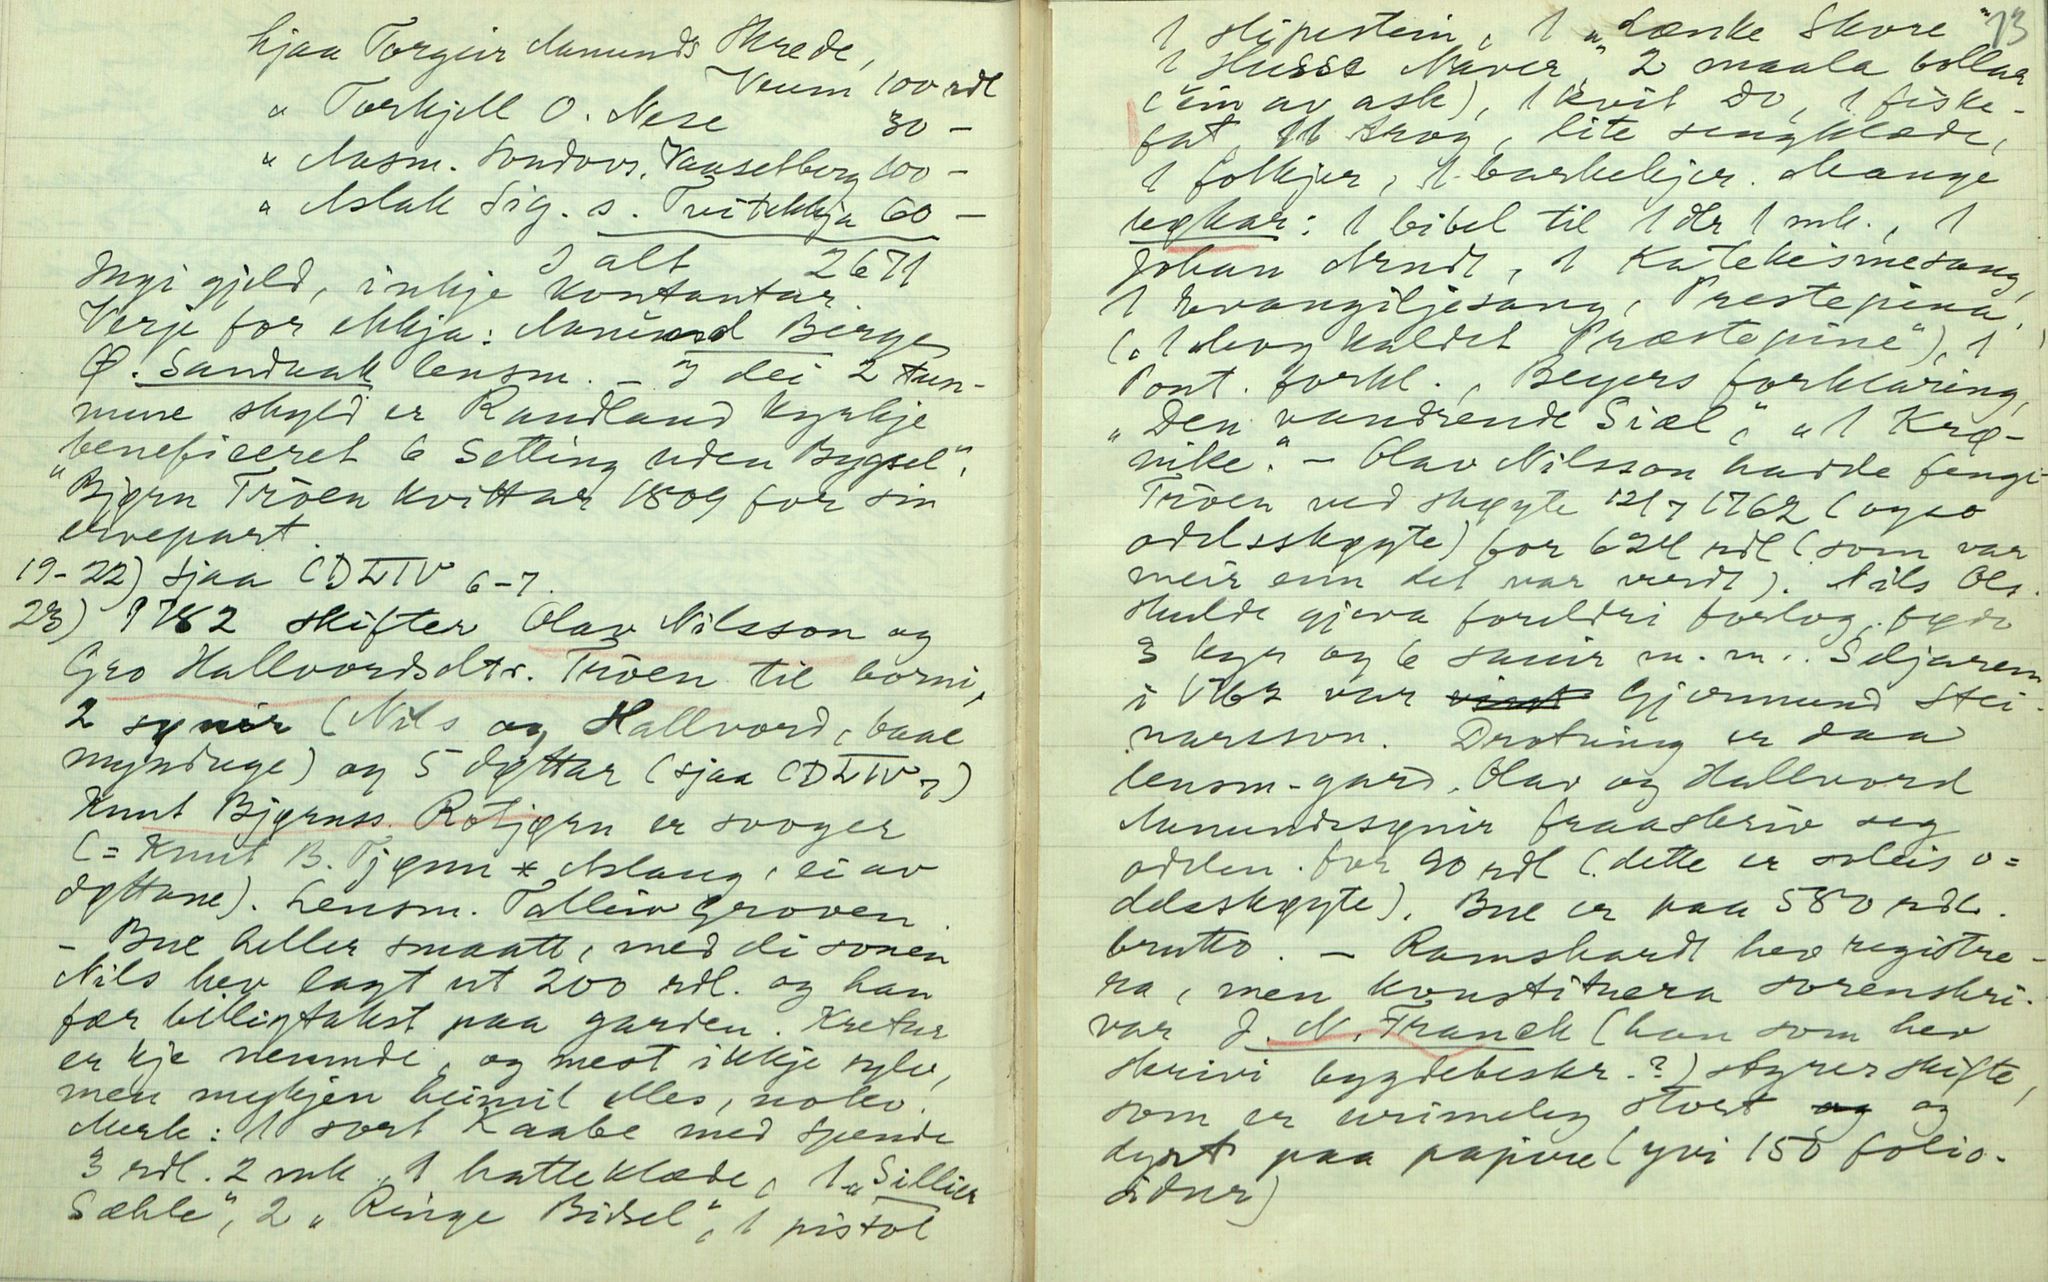 hjaa Torgeir Aamunds Skrede,
Veum 100 rdl
" Torkjell O. Nese 30 -
" Aasm. Sondovs. Vaaselberg 100 -
" Aslak Sig. s. Tveitekkja 60 -
I alt 2671
Ingi gjeld, inkje kontantar.
Verje for ekkja: Aamund Berge
Ø. Sandaak lensm. - I dei 2 tun-
nune skyld er Randland kyrkje
"beneficeret 6 Setting uden Bygsel".
Bjørn Tröen kvittar 1809 for sin
arvepart.
19-22) sjaa CDLIV 6-7.
23) 1782 skifter Olav Nilsson og
Gro Hallvordsdtr. Tröen til borni,
2 synir (Nils og Hallvord, baae
mynduge) og 5 døttar (sjaa CDLIV 7)
Knut Bjørnss. Rötjørn er svoger
(= Knut B. Tjønn * Aslaug, ei av
døttane). Lensm. Talleiv Groven.
- Bue heller smaatt, med di sonen
Nils hev lagt ut 200 rdl. og han
fær billigtakst paa garden. Kretur
er kje nemnde, og mest ikkje sylv,
men mykjen heimil elles, nokv.
Merk: 1 sort Kaabe med spende
3 rdl. 2 mk., 1 hatteklæde, 1 "Sillier
Sæhle", 2 "Ringe Bidsel", 1 pistol
13
1 slipestein, 1 "Lænke Skore"
1 "Husse Naver", 2 maala bollar
(ein av ask), 1 kvit Do, 1 fiske-
fat, 11 trog, lite sengklæde,
1 folkjer, 1 barkekjer. Mange
bøkar: 1 bibel til 1 dlr 1 mk., 1
Johan Arndt, 1 Katekismesang,
1 Evangiljesang, Prestepina,
("1 Bog kaldet Præstepine"), 1
Pont. forkl., Beyers forklaring,
"Den vandrende Siæl", "1 Krø-
nike". - Olav Nilsson hadde fengi
Tröen ved skøyte 12/7 1762 (ogso
odelsskøyte) for 624 rdl (som var
meir enn det var verdt). Nils Ols.
skulde gjeva foreldri forlog, føde
3 kyr og 6 sauir m. m. Seljaren
i 1762 var Gjermund Stei-
narsson. Drotning er daa
lensm-gard. Olav og Hallvord
Aamundssynir fraaskriv seg
odelen for 90 rdl (dette er soleis o=
delsskøyte). Bue er paa 580 rdl.
brutto. - Ramshardt hev registre-
ra, men konstituera sorenskri-
var J. N. Franck (han som hev
skrivi bygdebeskr.?) styrer skifte,
som er urimeleg stort og
dyrt paa papire (yvi 150 folio-
sidur)